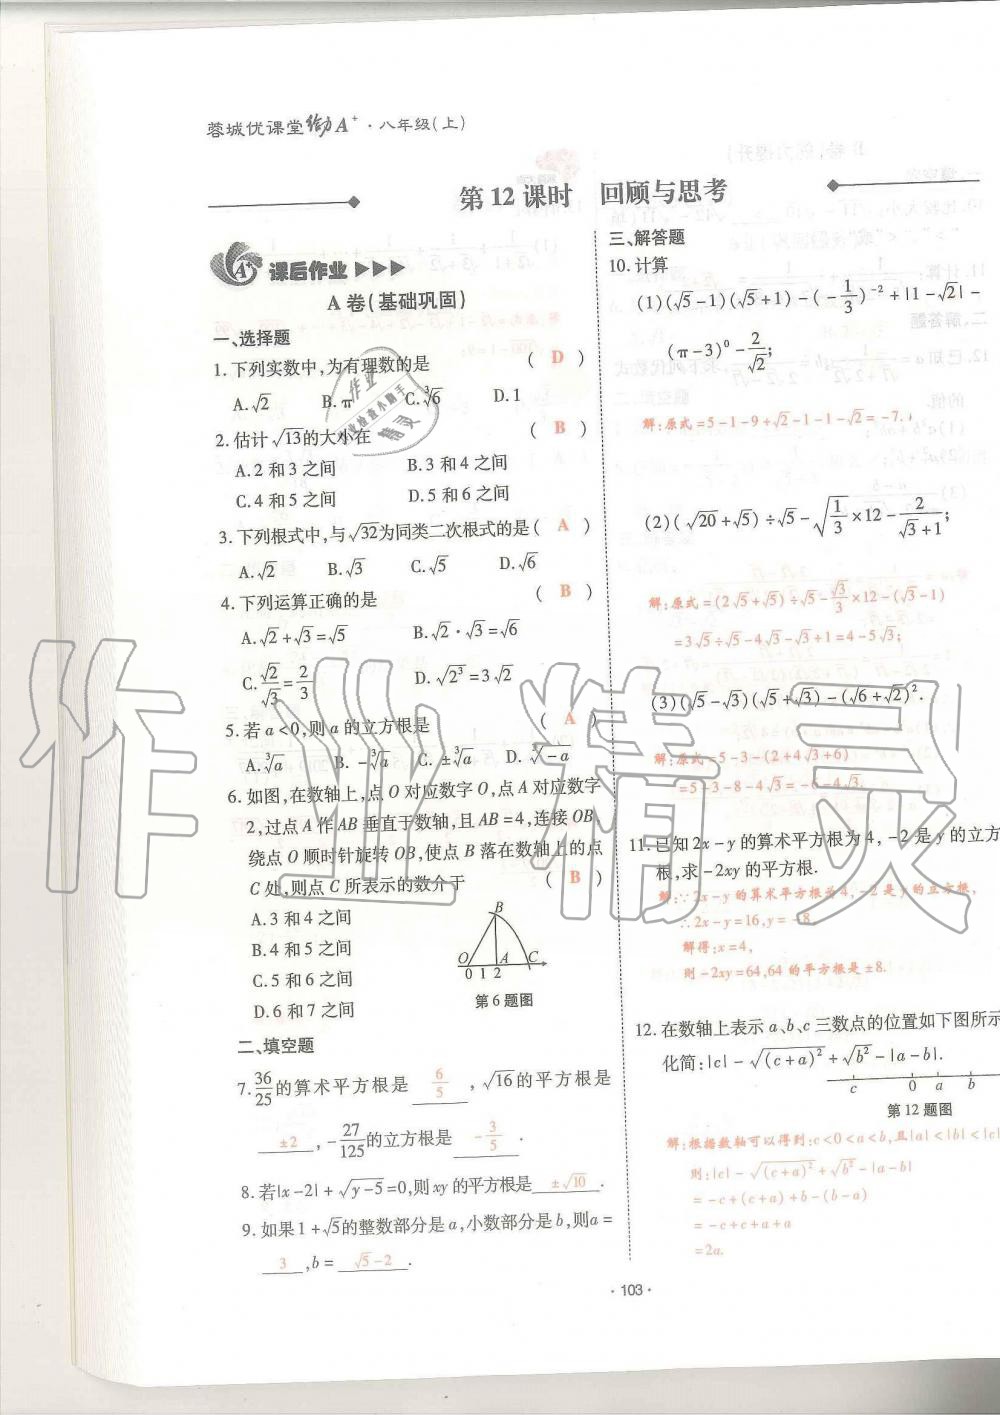 蓉城优课堂 给力A⁺·八年级(上)
第12课时 回顾与思考
A⁺ 课后作业▶▶▶
A卷(基础巩固)
一、选择题
1.下列实数中,为有理数的是 ( D )
A.√2 B.π C.∛6 D.1
2.估计√13的大小在 ( B )
A.2和3之间 B.3和4之间
C.4和5之间 D.5和6之间
3.下列根式中,与√32为同类二次根式的是( A )
A.√2 B.√3 C.√5 D.√6
4.下列运算正确的是 ( B )
A.√2+√3=√5 B.√2·√3=√6
C.√2/√3=2/3 D.√(2³)=3√2
5.若a<0,则a的立方根是 ( A )
A.∛a B.-∛a C.±∛a D.∛(-a)
6.如图,在数轴上,点O对应数字O,点A对应数字
2,过点A作AB垂直于数轴,且AB=4,连接OB,
绕点O顺时针旋转OB,使点B落在数轴上的点
C处,则点C所表示的数介于 ( B )
A.3和4之间
B.4和5之间
C.5和6之间
D.6和7之间
B
O A C
0 1 2
第6题图
二、填空题
7.36/25的算术平方根是 6/5 ,√16的平方根是
±2 ,-27/125的立方根是 -3/5 .
8.若|x-2|+√(y-5)=0,则xy的平方根是 ±√10 .
9.如果1+√5的整数部分是a,小数部分是b,则a=
3 ,b= √5-2 .
三、解答题
10.计算
(1)(√5-1)(√5+1)-(-1/3)⁻²+|1-√2|-
(π-3)⁰-2/√2;
解:原式=5-1-9+√2-1-1-√2=-7.
(2)(√20+√5)÷√5-√(1/3)×12-2/(√3+1);
解:原式=(2√5+√5)÷√5-√3/3×12-(√3-1)
=3√5÷√5-4√3-√3+1=4-5√3;
(3)(√5-√3)(√5+√3)-(√6+√2)².
解:原式=5-3-(2+4√3+6)
=5-3-8-4√3=-6-4√3.
11.已知2x-y的算术平方根为4,-2是y的立方
根,求-2xy的平方根.
解:∵2x-y的算术平方根为4,-2是y的立方根,
∴2x-y=16,y=-8,
解得:x=4,
则-2xy=64,64的平方根是±8.
12.在数轴上表示a、b、c三数点的位置如下图所示
化简:|c|-√((c+a)²)+√(b²)-|a-b|.
c 0 a b
第12题图
解:根据数轴可以得到:c<0<a<b,且|a|<|b|<|c
则:|c|-√((c+a)²)+√(b²)-|a-b|
=-c+(c+a)+b-(b-a)
=-c+c+a+a
=2a.
·103·
作业
作业检查小助手
精灵
作业精灵